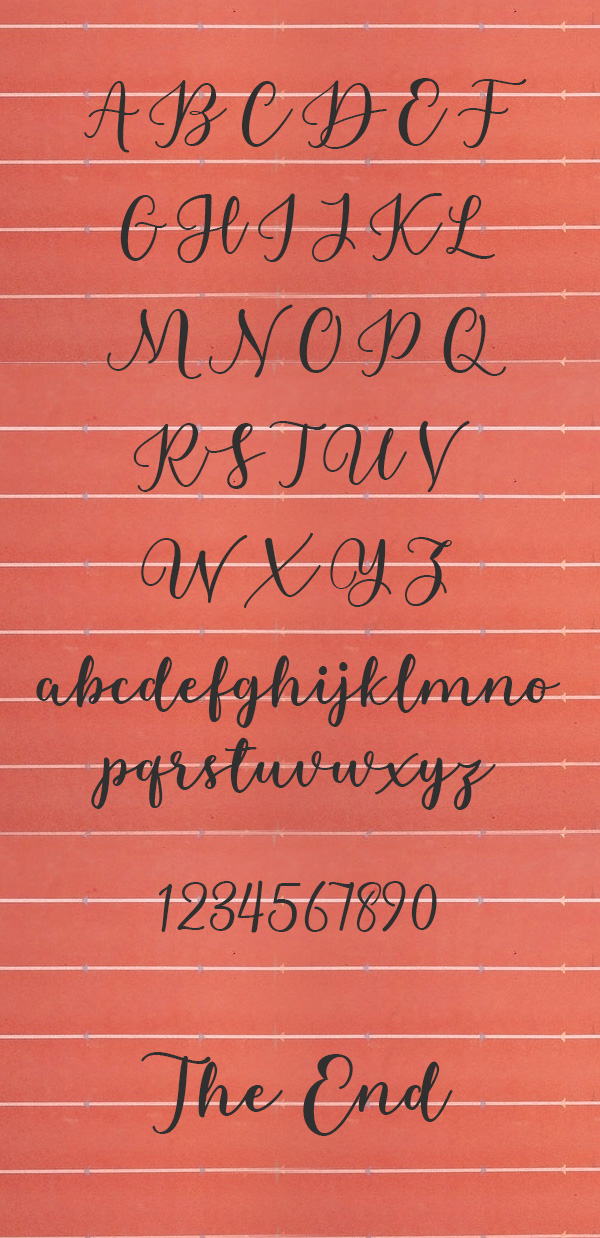 A B C D E F
G H I J K L
M N O P Q
R S T U V
W X Y Z
abcdefghijklmno
pqrstuvwxyz
1234567890
The End